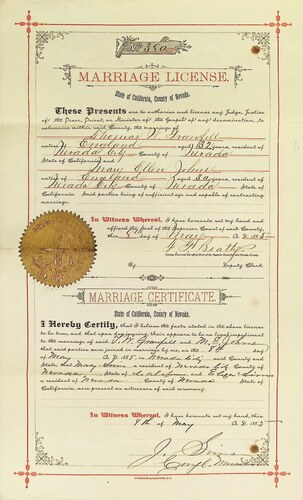 No. 350
MARRIAGE LICENSE.
State of California, County of Nevada.
These Presents are to authorize and license any Judge, Justice
of the Peace, Priest, or Minister of the Gospel of any denomination, to
solemnize within said County, the marriage of
Thomas
native of England aged 32 years, resident of
Nevada City County of Nevada
State of California and
Mary Ellen Johns
native of England aged years, resident of
Nevada City County of Nevada State of
California. Said parties being of sufficient age and capable of contracting
marriage.
In Witness Whereof, I have hereunto set my hand and
affixed the Seal of the Superior Court of said County,
this 8th day of May A.D. 1885
Deputy Clerk
MARRIAGE CERTIFICATE
State of California, County of Nevada.
I Hereby Certify, that I believe the facts stated in the above license
to be true, and that upon due inquiry, there appears to be no legal impediment
to the marriage of said and M. E. Johns
that said parties were joined in marriage by me, on the 8th day
of May A.D. 1885, in Nevada City said County and
State; that a resident of Nevada City County of
Nevada, State of California and
a resident of Nevada County of Nevada State of
California, are present as witnesses of said ceremony.
In Witness Whereof, I have hereunto set my hand, this
8th of May A.D. 1885
J. Sims